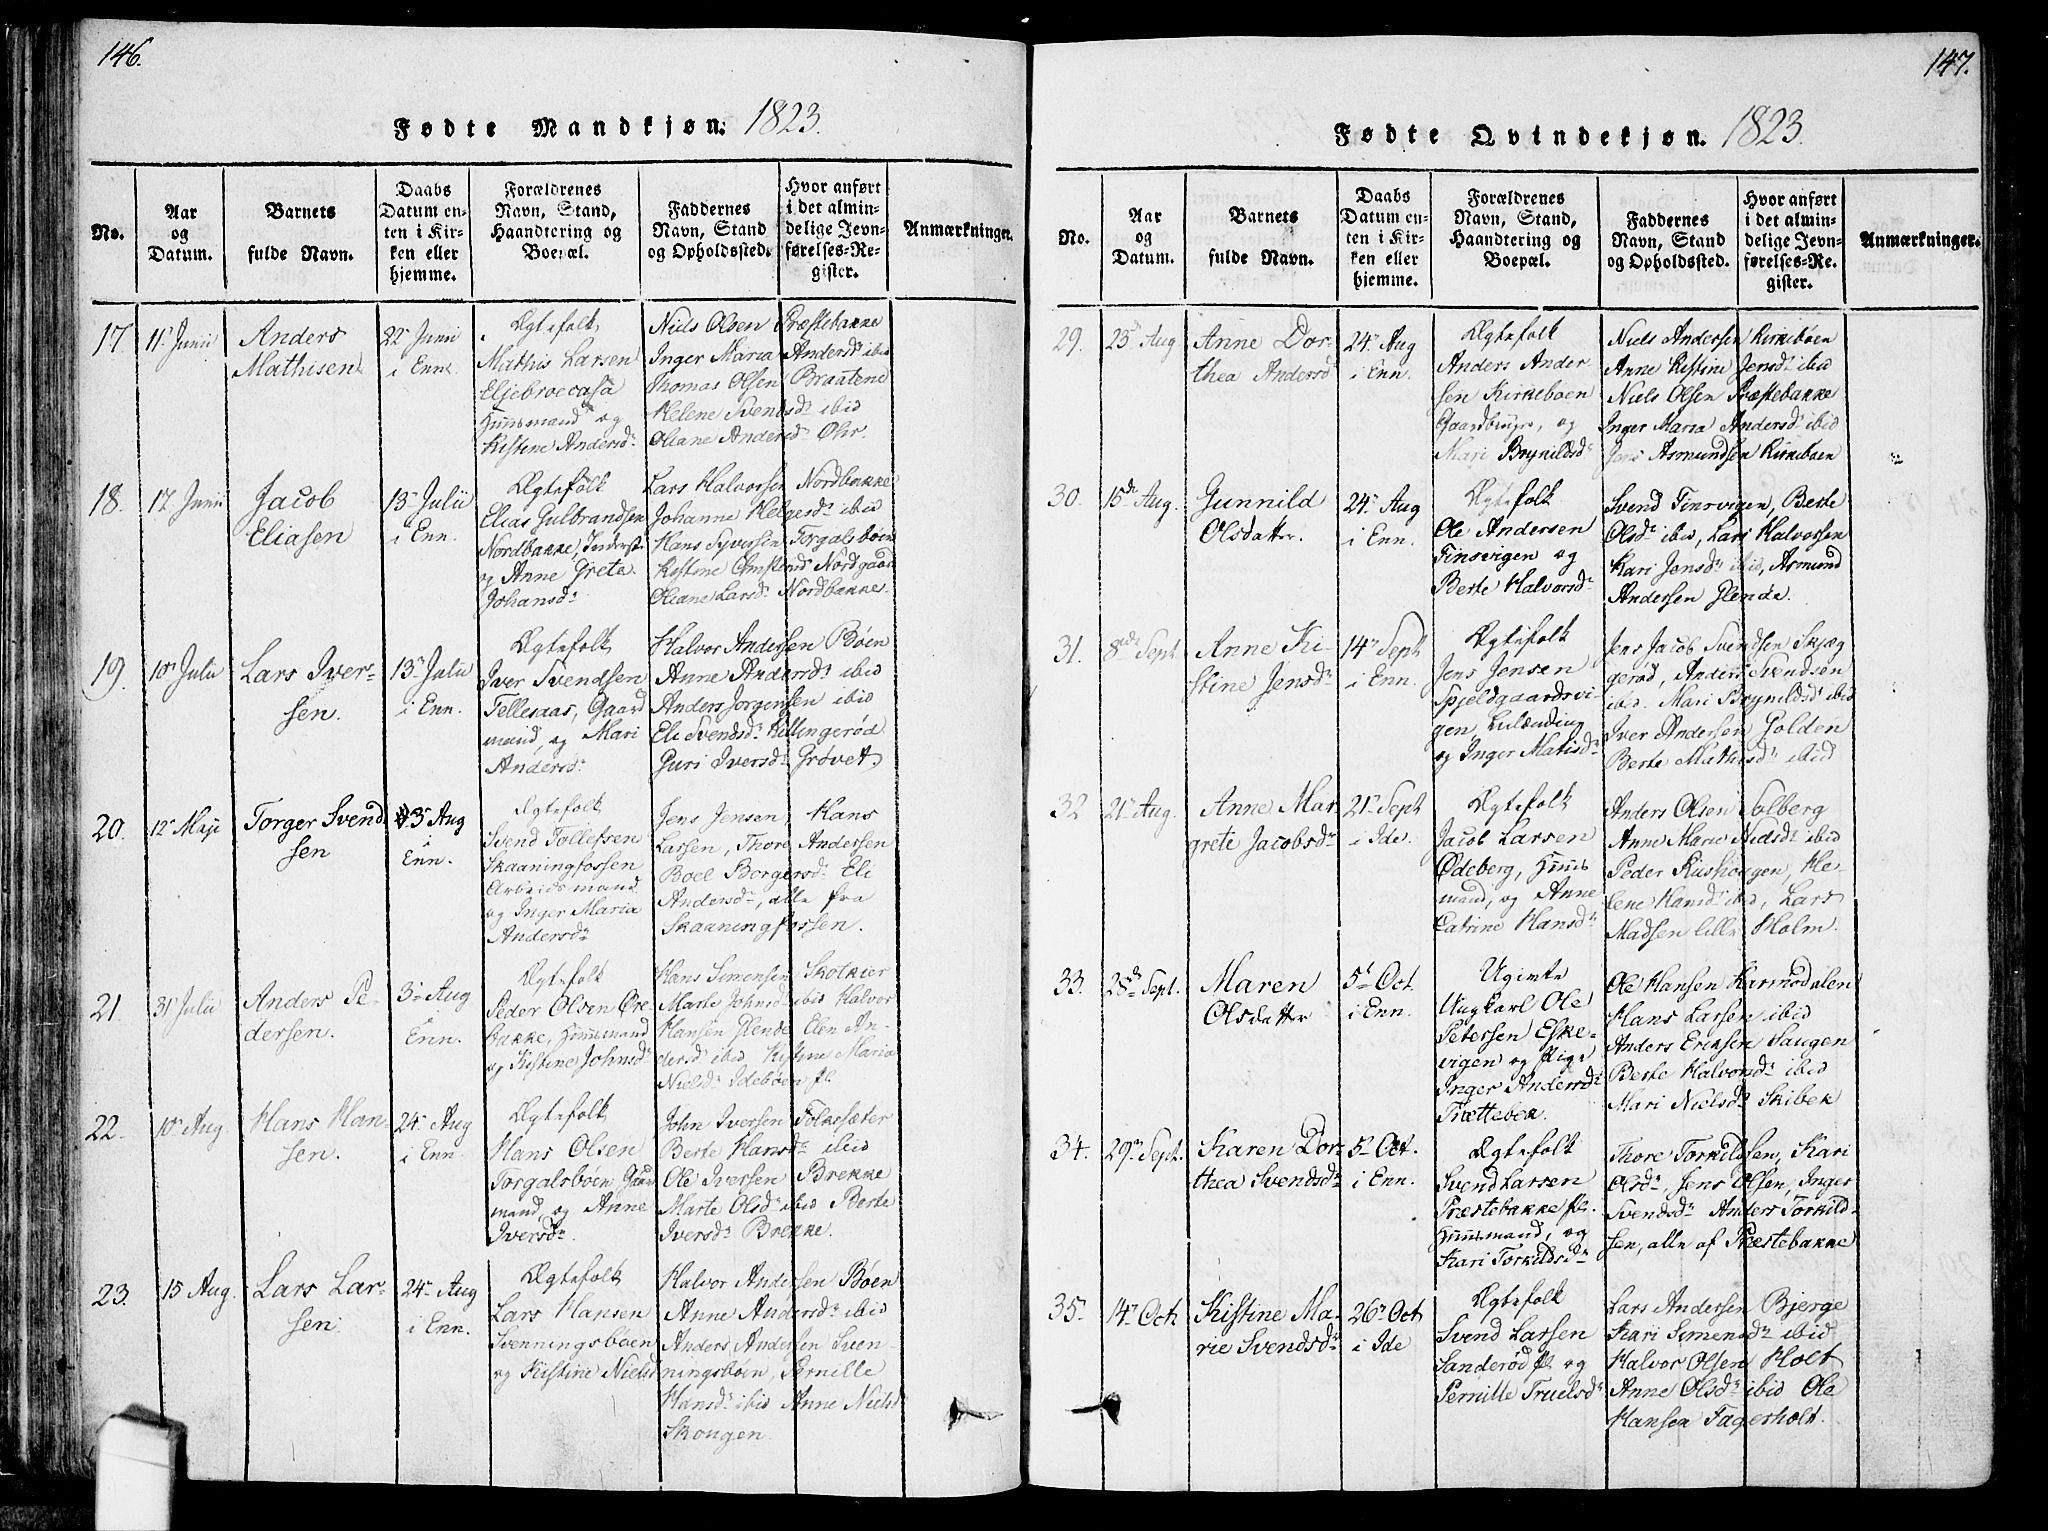 146.
Fødte Mandkjøn. 1823.
No.
Aar
og
Datum.
Barnets
fulde Navn.
Daabs
Datum en-
ten i Kir-
ken eller
hjemme.
Forældrenes
Navn, Stand,
Haandtering og
Boepæl.
Faddernes
Navn, Stand
og Opholdssted.
Hvor anført
i det almin-
delige Jevn-
førelses-Re-
gister.
Anmærkninger.
17
11 Junii
Anders
Mathisen
22 Junii
i Enn.
Ægtefolk
Mathis Larsen
Huusmand og
Kistine Andersd.
Niels Olsen Præstebakke
Inger Maria Andersd ibid
Thomas Olsen Braatene
Helene Svendsd. ibid
Oliane Andersd. Ohr.
18.
17 Junii
Jacob
Eliasen
13 Julii
i Enn.
Ægtefolk
Elias Gulbrandsen
Nordbakke, Inderst
og Anne Greta
Johansd.
Lars Halvorsen Nordbakke
Johanne Helgesd. ibid
Hans Syversen Torgalsbøen
Kistine Nordgaard
Oliane Larsd. Nordbakke.
19.
10 Julii
Lars Iver-
sen.
13 Julii
i Enn.
Ægtefolk
Iver Svendsen
Tellesaas, Gaard
mand, og Mari
Andersd.
Halvor Andersen Bøen
Anne Andersd. ibid
Anders Jorgensen ibid
Eli Svendsd. Killingerød
Guri Iversd. Grøvet.
20.
12 Maji
Torger Svend
sen
3 Aug
i
Enn.
Ægtefolk
Svend Tollefsen
Skaaningfossen
Arbeidsmand
og Inger Maria
Andersd.
Jens Jensen, Hans
Larsen, Thore Andersen
Boel Borgersd. Eli
Andersd., alle fra
Skaaningfossen.
21.
31 Julii
Anders Pe-
dersen.
3 Aug
i
Enn.
Ægtefolk
Peder Olsen Øre-
bakke, Huusmand
og Kistine Johnsd.
Hans Simensen Skolkier
Marte Johnsd ibid Halvor
Hansen Glende Olen An-
dersd ibid Kistine Maria
Nielsd. Idebøen fl.
22.
10 Aug.
Hans Han-
sen.
24 Aug
i Enn.
Ægtefolk
Hans Olsen
Torgalsbøen Gaar
mand, og Anne
Iversd.
John Iversen Folkesæter
Berte Hansd. ibid
Ole Iversen Brekke
Marte Olsd. ibid Berte
Iversd. Brekke.
23.
15 Aug.
Lars Lar-
sen
24 Aug
i Enn.
Ægtefolk
Lars Hansen
Svenningsboen
og Kistine Nielsd
Halvor Andersen Bøen
Anne Andersd. ibid
Anders Andersen Sven-
ningsbøen, Pernille
Hansd. ibid Anne Nielsd
Skougen.
147.
Fødte Qvindekjøn. 1823.
No.
Aar
og
Datum.
Barnets
fulde Navn.
Daabs
Datum en-
ten i Kir-
ken eller
hjemme.
Forældrenes
Navn, Stand,
Haandtering og
Boepæl.
Faddernes
Navn, Stand
og Opholdssted.
Hvor anført
i det almin-
delige Jevn-
førelses-Re-
gister.
Anmærkninger.
29.
23 Aug
Anne Dor-
thea Andersd
24 Aug
i Enn.
Ægtefolk
Anders Ander-
sen Kirkeboen
Gaardbruger, og
Mari Brynildsd.
Niels Andersen Kirkebøen
Anne Kistine Jensd. ibid
Niels Olsen Præstebakke
Inger Maria Andersd. ibid
Jens Asmundsen Kirkeboen
30.
15de Aug.
Gunnild
Olsdatter.
24 Aug
i Enn.
Ægtefolk
Ole Andersen
Finsvigen og
Berte Halvorsd.
Svend Finsvigen, Berte
Olsd. ibid, Lars Halvorsen
Kari Jensd. ibid, Asmund
Andersen Glende.
31.
8de Sept
Anne Ki-
stine Jensd.
14 Sept
i Enn.
Ægtefolk
Jens Jensen
Spjeldgaardsvi-
gen,
og Inger Matisd.
Jens Jacob Svendsen Skjæg
gerød, Anders Svendsen
ibid. Mari Brynildsd. ibid
Iver Andersen Holden
Berte Mathisd. ibid
32
21 Aug.
Anne Mar
grete Jacobsd.
21 Sept
i Ide.
Ægtefolk
Jacob Larsen
Ødeberg, Huus
mand, og Anne
Catrine Hansd.
Anders Olsen Solberg
Anne Marie Nielsd. ibid
Peder Riishougen, He-
lene Hansd. ibid, Lars
Madsen lille Holm.
33.
28de Sept.
Maren
Olsdatter
5 Oct.
i Enn.
Ugivte
Ungkarl Ole
Petersen Eske-
vigen og Pige
Inger Andersd.
Prættebek.
Ole Hansen Karmodalen
Hans Larsen ibid
Anders Eriksen Saugen
Berte Halvorsd. ibid
Mari Nielsd. Skibek
34.
29 Sept.
Karen Dor-
thea Svendsd.
5 Oct.
i Enn.
Ægtefolk
Svend Larsen
Præstebakke fl.
Huusmand, og
Kari Torkildsd.
Thore Torkildsen, Kari
Olsd., Jens Olsen, Inger
Svendsd. Anders Torkild-
sen, alle af Præstebakke
35.
14 Oct
Kistine Ma-
rie Svendsd.
26 Oct
i Ide
Ægtefolk
Svend Larsen
Sanderød fl og
Pernille Truelsd.
Lars Andersen Bjerge
Kari Simensd. ibid
Halvor Olsen Holt
Anne Olsd. ibid Ole
Hansen Fagerholt.